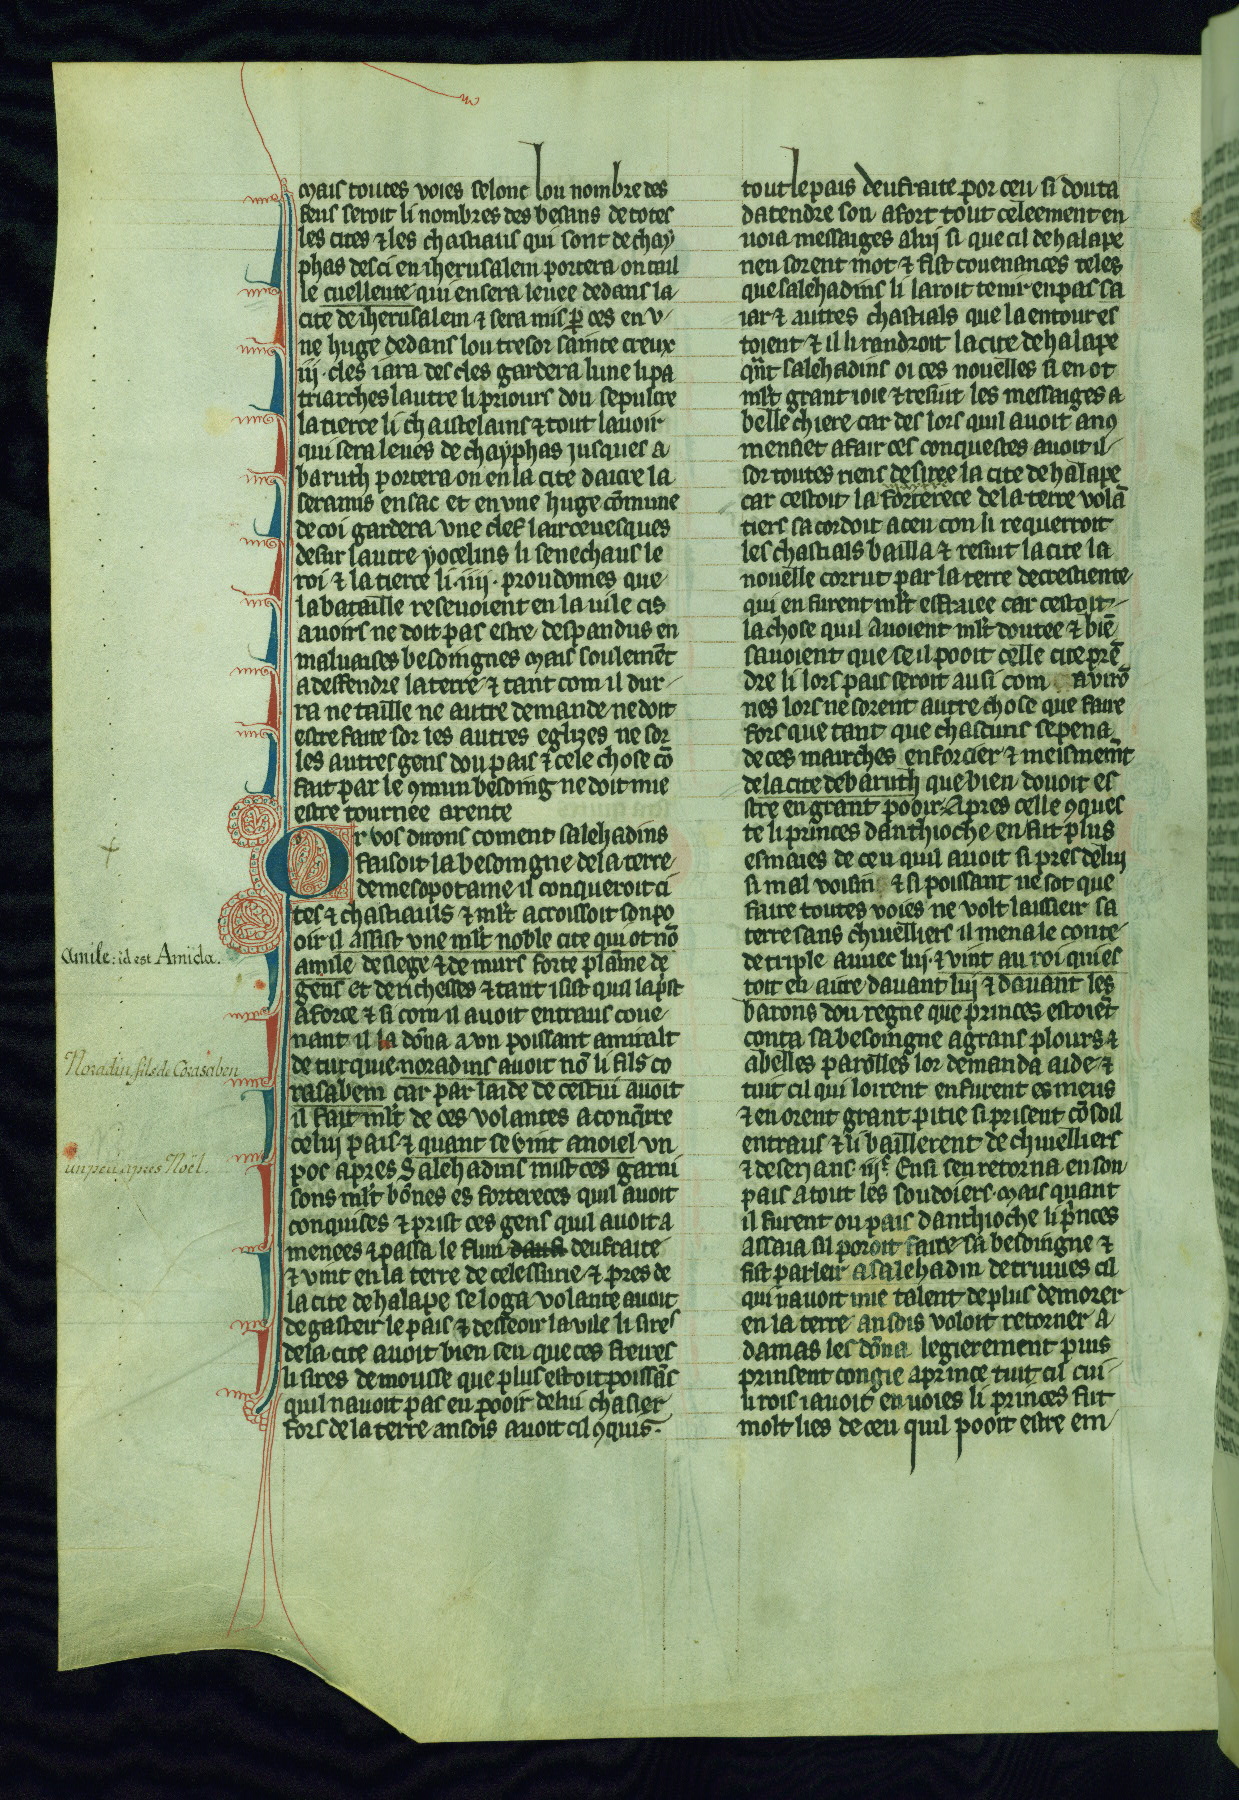 mais toutes voies selonc lou nombre des
feus seroit li nombres des besans de totes
les cites ⁊ les chastiaus qui sont de chay
phas desci en iherusalem portera on tail
le cuellente qui en sera leuee dedans la
cite de iherusalem ⁊ sera mis p̄ ces en v
ne huge dedans lou tresor sainte creux
iij cles iara des cles gardera lune li pa
triarches lautre li priours dou sepulcre
la tierce li chastelains ⁊ tout lauoir
qui sera leues de chayphas jusques a
baruth portera on en la cite dacre la
sera mis en sac et en vne huge cōmune
de coi gardera vne clef larceuesques
de sur lautre yocelins li senechaus le
roi ⁊ la tierce li .iiij. proudomes que
la bataille reseuoient en la uile cis
auoirs ne doit pas estre despandus en
maluaises besoingnes mais soulemēt
a deffendre la terre ⁊ tant com il dur
ra ne taille ne autre demande ne doit
estre faite sor les autres eglizes ne sor
les autres gens dou pais ⁊ cele chose cō
fait par le ꝯmun besoing ne doit mie
estre tournee a rente
Or vos dirons coment salehadins
faisoit la besoingne de la terre
de mesopotame il conqueroit ci
tes ⁊ chastiauls ⁊ mlt acroissoit son po
oir il assist vne mlt noble cite qui ot nō
amile de siege ⁊ de murs forte plaine de
gens et de richesses ⁊ tant i sist quil la pst
a force ⁊ si com il auoit entraus coue
nant il la dōna a vn poissant amiralt
de turquie noradins auoit nō li fils co
rasabem car par laide de cestui auoit
il fait mlt de ces volantes a conq̄rre
celuj pais ⁊ quant se vint a noiel vn
poc apres Salehadins mist ces garni
sons mlt bōnes es fortereces quil auoit
conquises ⁊ prist ces gens quil auoit a
menees ⁊ passa le flun deufraite
⁊ vint en la terre de celessurie ⁊ pres de
la cite de halape se loga volante auoit
de gasteir le pais ⁊ desseoir la vile li sires
de la cite auoit bien seu que ces freires
li sires de mousse que plus estoit poissās
quil nauoit pas eu pooir de lui chasier
fors de la terre ansois auoit cil ꝯquis
tout le pais deufraite por ceu si douta
datendre son afort tout celeement en
uoia messaiges a luj si que cil de halape
nen sorent mot ⁊ fist couenances teles
que salehadins li laroit tenir en pas sa
iar ⁊ autres chastials que la entour es
toient ⁊ il li randroit la cite de halape
qn̄t salehadins oi ces nouelles si en ot
mlt grant ioie ⁊ resiut les messaiges a
belle chiere car des lors quil auoit anꝯ
mensiet a fair ces conquestes auoit il
sor toutes riens desiree la cite de halape
car cestoit la forterece de la terre volā
tiers sacordoit a ceu con li requerroit
les chastials bailla ⁊ resiut la cite la
nouelle corrut par la terre de crestiente
qui en furent mlt effraiee car cestoit
la chose quil auoient mlt doutee ⁊ biē
sauoient que se il pooit celle cite prē
dre li lors pais seroit ausi com auirō
nes lors ne sorent autre chose que faire
fors que tant que chascuns se pena
de ces marches enforcier ⁊ meismemt
de la cite de baruth que bien douoit es
stre en grant pooir Apres celle ꝯques
te li princes danthioche en fut plus
esmaies de ceu quil auoit si pres de luj
si mal voisin ⁊ si poissant ne sot que
faire toutes voies ne volt laissieir sa
terre sans chiuelliers il mena le conte
de triple auuec luj ⁊ vint au roi qui es
toit en acre dauant luj ⁊ dauant les
barons dou regne que princes estoiēt
conta sa besoingne a grans plours ⁊
a belles parolles lor demanda aide ⁊
tuit cil qui loirent en furent esmeus
⁊ en orent grant pitie si prisent cōsoil
entraus ⁊ li baillerent de chiuelliers
⁊ de serjans iijc Ensi sen retorna en son
pais a tout les soudoiers mais quant
il furent ou pais danthioche li p̄nces
assaia sil poroit faire sa besoingne ⁊
fist parleir a salehadin de triuues cil
qui nauoit mie talent de plus demorer
en la terre ansois voloit retorner a
damas les dōna legierement puis
prinsent congie a prince tuit cil cui
li rois i auoit enuoies li princes fut
molt lies de ceu quil pooit estre em
Amile: id est Amida.
Noradin fils de Corasaben
un peu apres Noël.